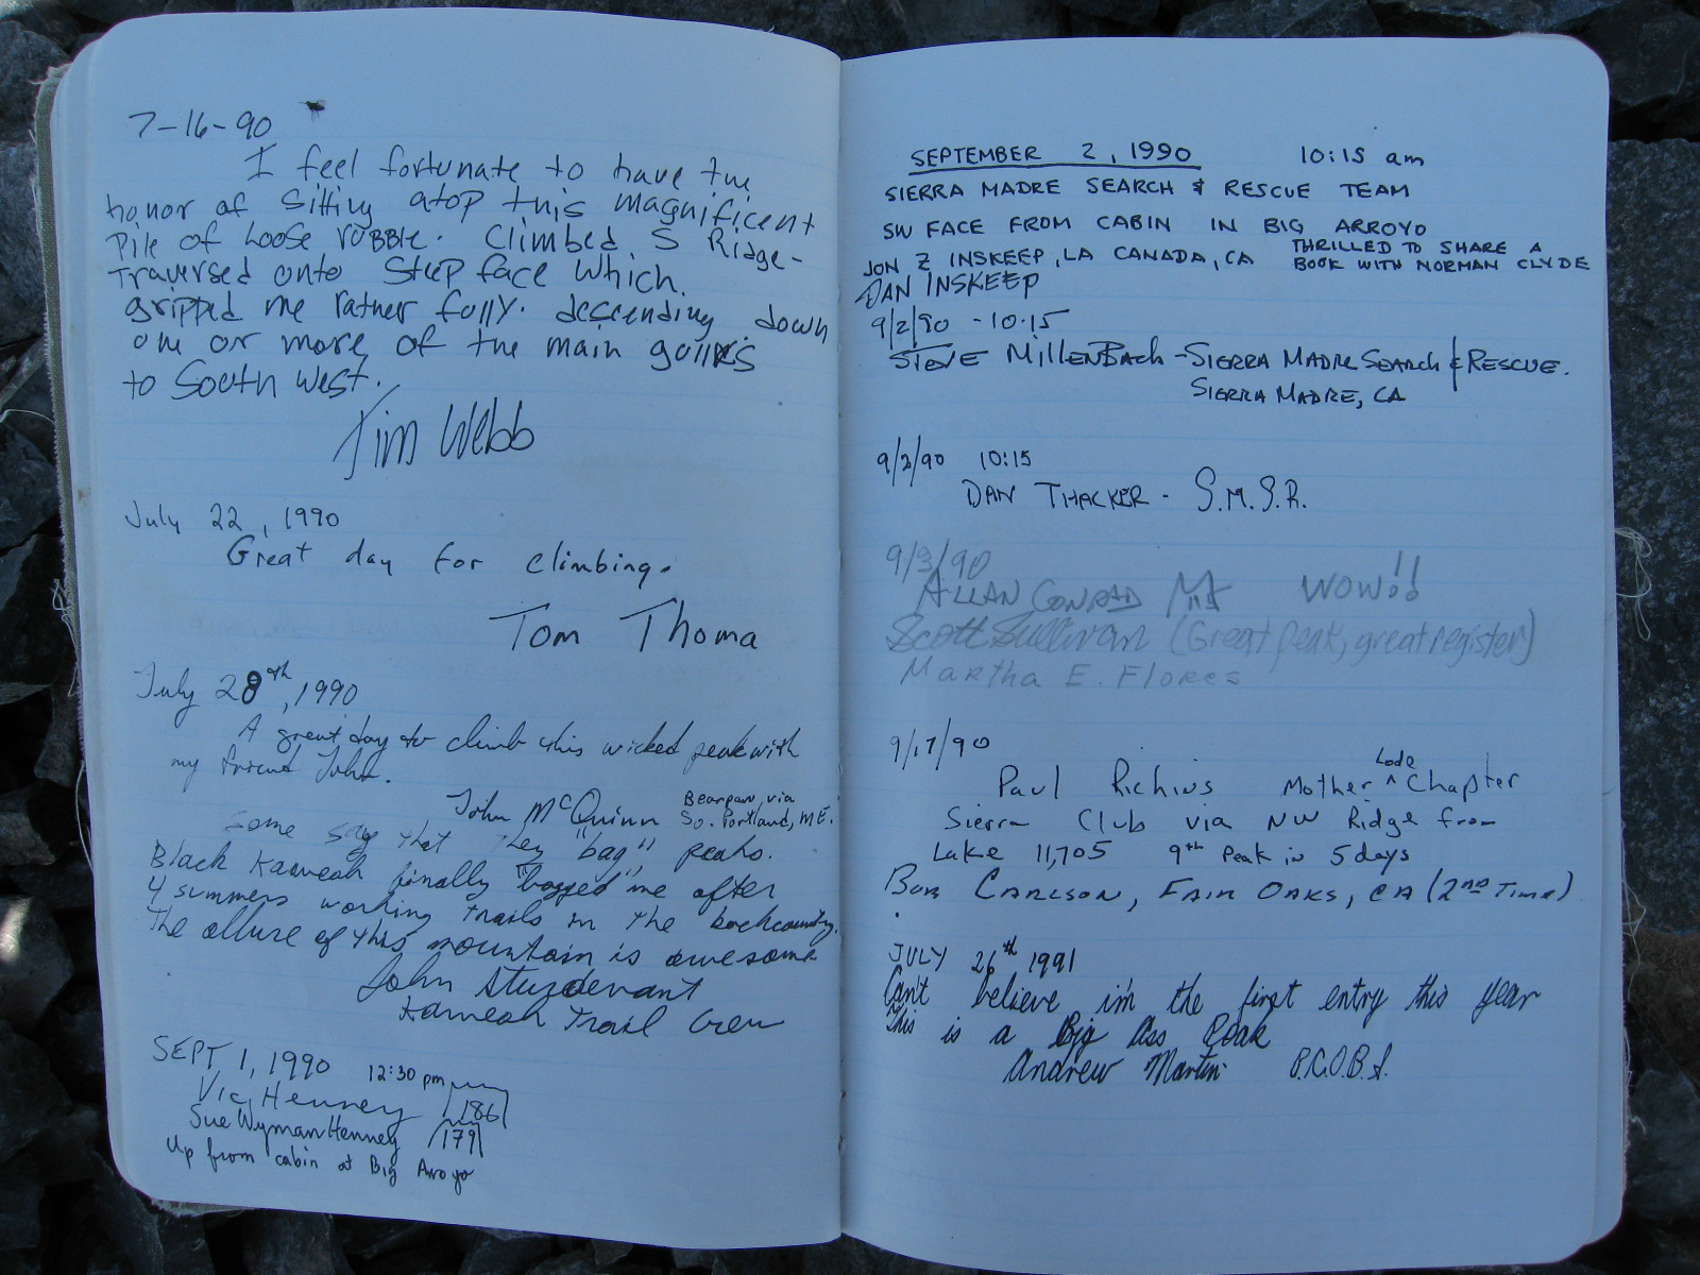 7-16-90
I feel fortunate to have the
honor of sitting atop this magnificent
Pile of Loose rubble. Climbed S Ridge-
Traversed onto Steep face which
gripped me rather fully. descending down
one or more of the main gullies
to South West.
Tim Webb
July 22, 1990
Great day for climbing.
Tom Thoma
July 28th, 1990
A great day to climb this wicked peak with
my friend John.
John McQuinn Bearpaw via
So. Portland, ME.
Some say that they "bag" peaks.
Black Kaweah finally "bagged" me after
4 summers working trails in the backcountry.
The allure of this mountain is awesome
John Sturdevant
Kaweah Trail Crew
SEPT 1, 1990 12:30 pm
Vic Henney 186
Sue Wyman Henney 179
Up from cabin at Big Arroyo
SEPTEMBER 2, 1990 10:15 am
SIERRA MADRE SEARCH & RESCUE TEAM
SW FACE FROM CABIN IN BIG ARROYO
JON Z INSKEEP, LA CANADA, CA THRILLED TO SHARE A
BOOK WITH NORMAN CLYDE
DAN INSKEEP
9/2/90 - 10:15
STEVE MILLENBACH - SIERRA MADRE SEARCH & RESCUE.
SIERRA MADRE, CA
9/2/90 10:15
DAN THACKER - S.M.S.R.
9/3/90
ALLAN CONRAD WOW!!
Scott Sullivan (Great peak, great register)
Martha E. Flores
9/17/90
Paul Richins Mother Lode Chapter
Sierra Club via NW Ridge from
Lake 11,705 9th Peak in 5 days
BOB CARLSON, FAIR OAKS, CA (2ND TIME)
JULY 26th 1991
Can't believe i'm the first entry this year
This is a Big Ass Peak
Andrew Martin